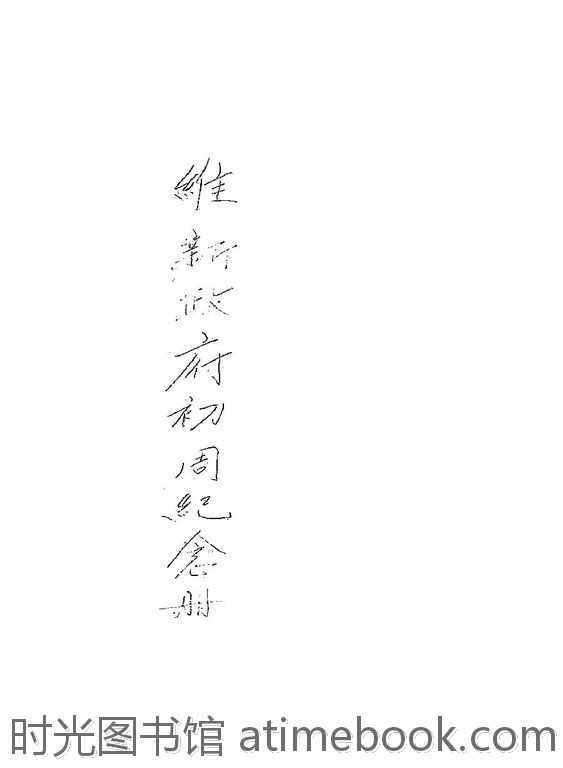 維新政府初周紀念册
时光图书馆 atimebook.com